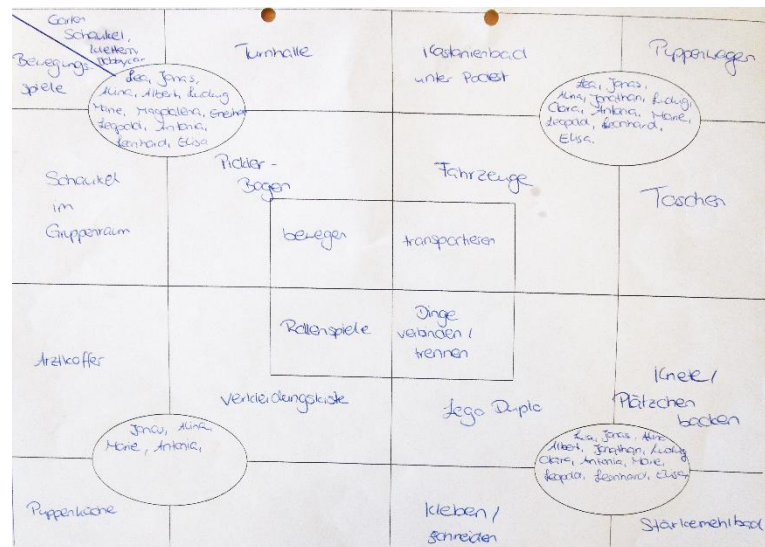 Garten
Schaukel,
klettern,
Bobbycar
Bewegungs-
spiele
Lea, Jonas,
Alina, Albert, Ludwig
Marie, Magdalena,
Leopold, Antonia,
Leonhard, Elisa
Turnhalle
Kastanienbad
unter Podest
Puppenwagen
Lea, Jonas,
Alina, Jonathan, Ludwig,
Clara, Antonia, Marie,
Leopold, Leonhard,
Elisa,
Schaukel
im
Gruppenraum
Pickler-
Bogen
Fahrzeuge
Taschen
bewegen
transportieren
Rollenspiele
Dinge
verbinden /
trennen
Arztkoffer
Verkleidungskiste
Lego Duplo
Knete /
Plätzchen
backen
Jonas, Alina,
Marie, Antonia,
Lea, Jonas, Alina
Albert, Jonathan, Ludwig
Clara, Antonia, Marie,
Leopold, Leonhard, Elisa,
Puppenküche
Kleben /
schneiden
Stärkemehlbad